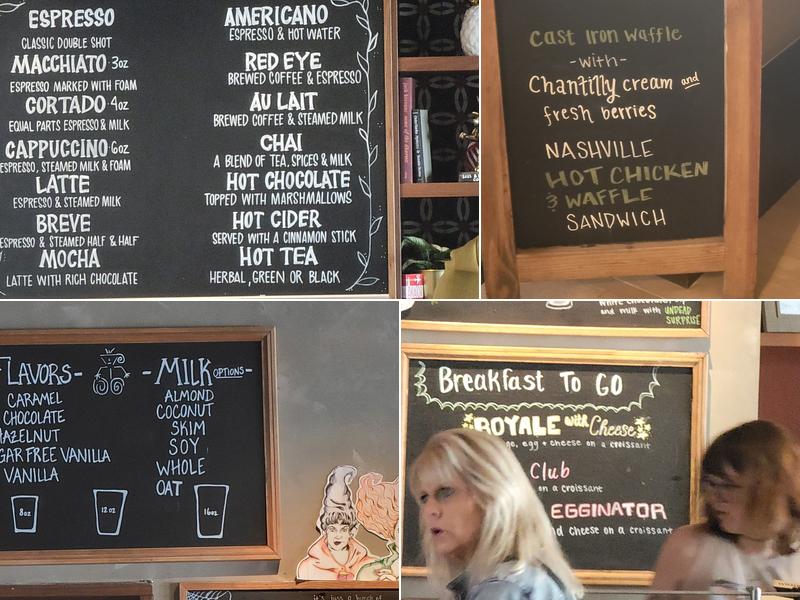 ESPRESSO
CLASSIC DOUBLE SHOT
MACCHIATO 3oz
ESPRESSO MARKED WITH FOAM
CORTADO 4oz
EQUAL PARTS ESPRESSO & MILK
CAPPUCCINO 6oz
ESPRESSO, STEAMED MILK & FOAM
LATTE
ESPRESSO & STEAMED MILK
BREVE
ESPRESSO & STEAMED HALF & HALF
MOCHA
LATTE WITH RICH CHOCOLATE
AMERICANO
ESPRESSO & HOT WATER
RED EYE
BREWED COFFEE & ESPRESSO
AU LAIT
BREWED COFFEE & STEAMED MILK
CHAI
A BLEND OF TEA, SPICES & MILK
HOT CHOCOLATE
TOPPED WITH MARSHMALLOWS
HOT CIDER
SERVED WITH A CINNAMON STICK
HOT TEA
HERBAL, GREEN OR BLACK
Cast Iron Waffle
-with-
Chantilly cream and
fresh berries
NASHVILLE
HOT CHICKEN
& WAFFLE
SANDWICH
FLAVORS-
CARAMEL
CHOCOLATE
HAZELNUT
GAR FREE VANILLA
VANILLA
8oz
12 oz
-MILK OPTIONS-
ALMOND
COCONUT
SKIM
SOY
WHOLE
OAT
16oz
it's just a bunch of
and milk with UNDEAD
SURPRISE
Breakfast To GO
ROYALE with Cheese
egg + cheese on a croissant
Club
on a croissant
EGGINATOR
and cheese on a croissant